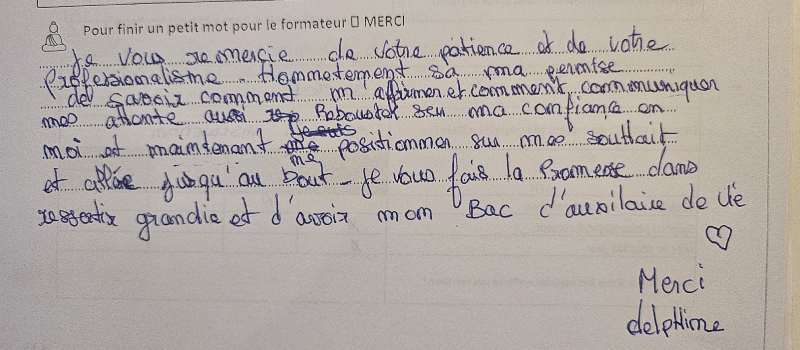 Pour finir un petit mot pour le formateur □ MERCI
Je vous remercie de votre patience et de votre
professionalisme. Honnestement sa ma permise
de savoir comment m'affirmer et comment communiquer
mes atiente aussi Reboustol seu ma confiance en
moi et maintenant me positionner sur mes souhait
et allée jusqu'au bout. Je vous fais la promesse dans
ressortir grandie et d'avoir mon Bac d'auxilaire de vie
Merci
delpHine